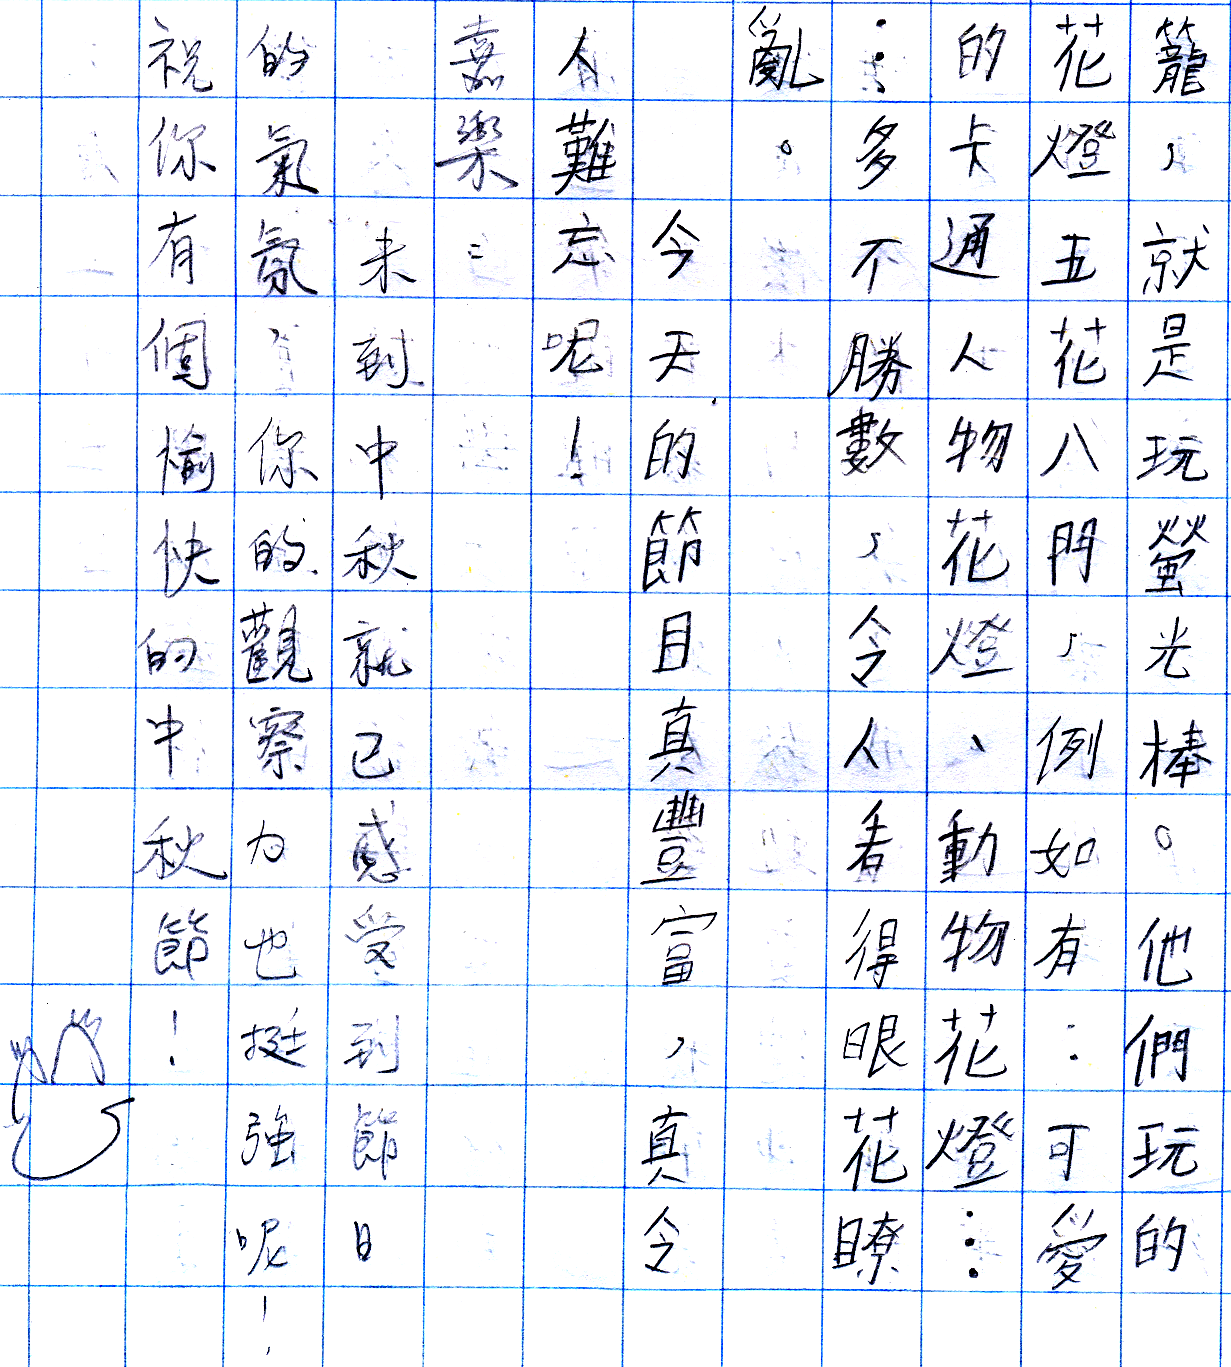 籠，就是玩螢光棒。他們玩的
花燈五花八門，例如有：可愛
的卡通人物花燈、動物花燈⋯
⋯多不勝數，令人看得眼花瞭
亂。
今天的節目真豐富，真令
人難忘呢！
嘉樂：
未到中秋就已感受到節日
的氣氛，你的觀察力也挺強呢！
祝你有個愉快的中秋節！